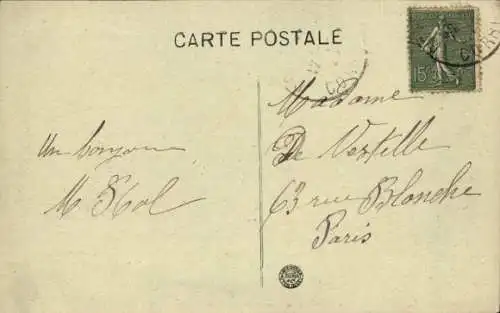 CARTE POSTALE
15
Madame
De Vertelle
63 rue Blanche
Paris
Un bonjour
M.